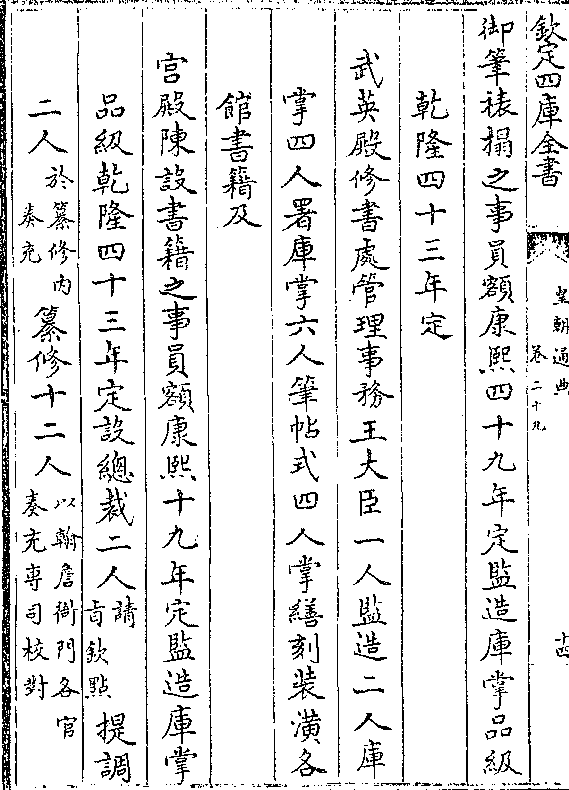 欽定四庫全書
皇朝通典 卷二十九
十四
御筆裱搨之事員額康熙四十九年定監造庫掌品級
乾隆四十三年定
武英殿修書處管理事務王大臣一人監造二人庫
掌四人署庫掌六人筆帖式四人掌繕刻裝潢各
館書籍及
宮殿陳設書籍之事員額康熙十九年定監造庫掌
品級乾隆四十三年定設總裁二人請旨欽點提調
二人於纂修内奏充纂修十二人以翰詹衙門各官奏充專司校對